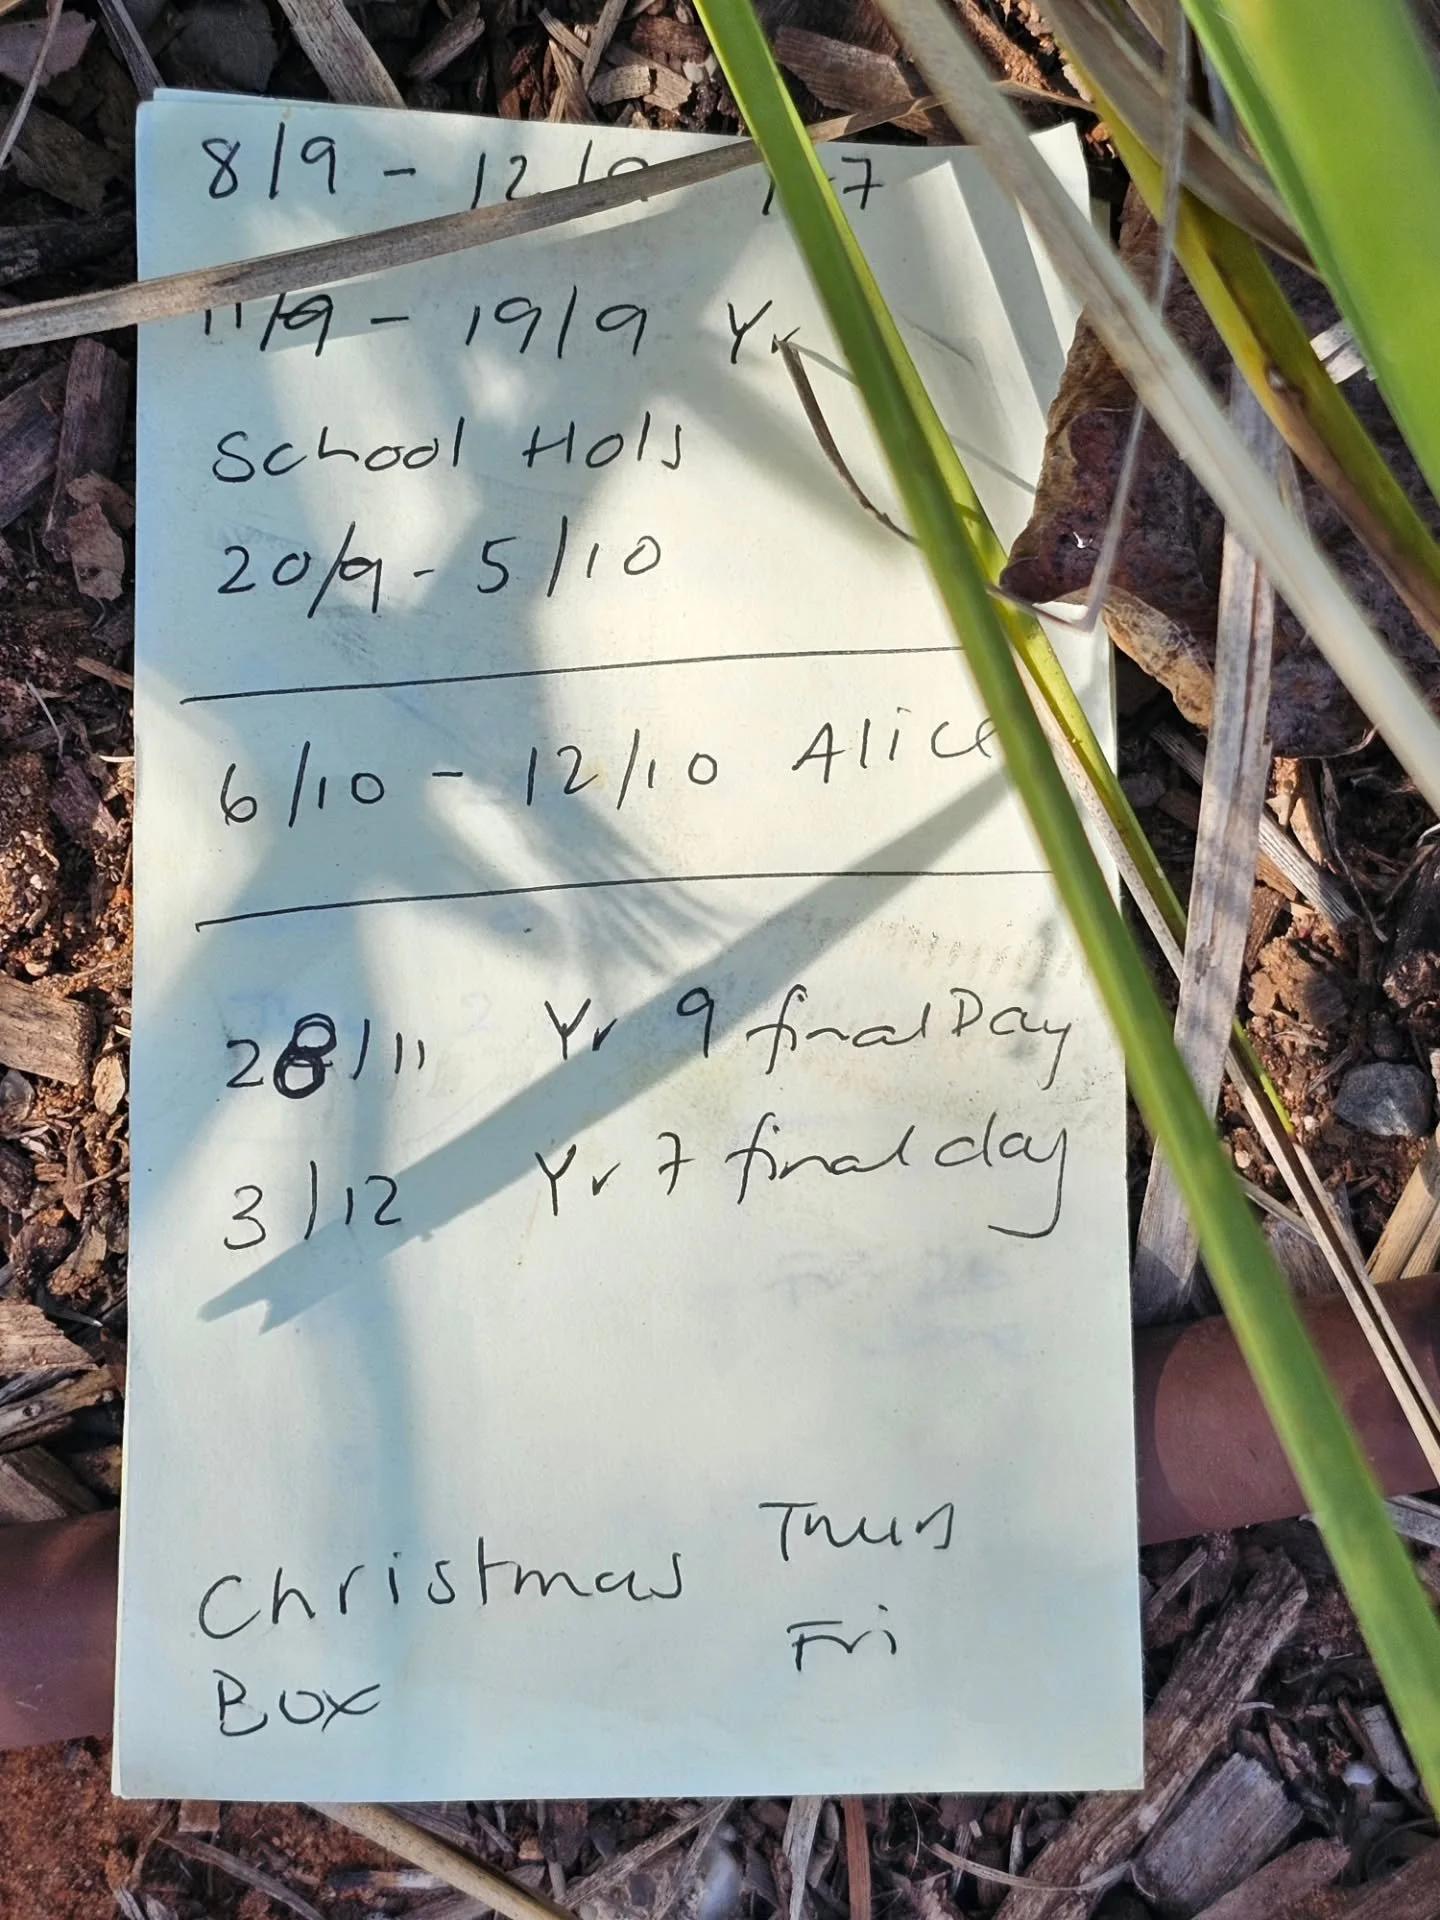 8/9 - 12/9 7
11/9 - 19/9 Yr
School Hols
20/9 - 5/10
6/10 - 12/10 Alice
28/11 Yr 9 final Day
3/12 Yr 7 final day
Christmas Thurs
Box Fri